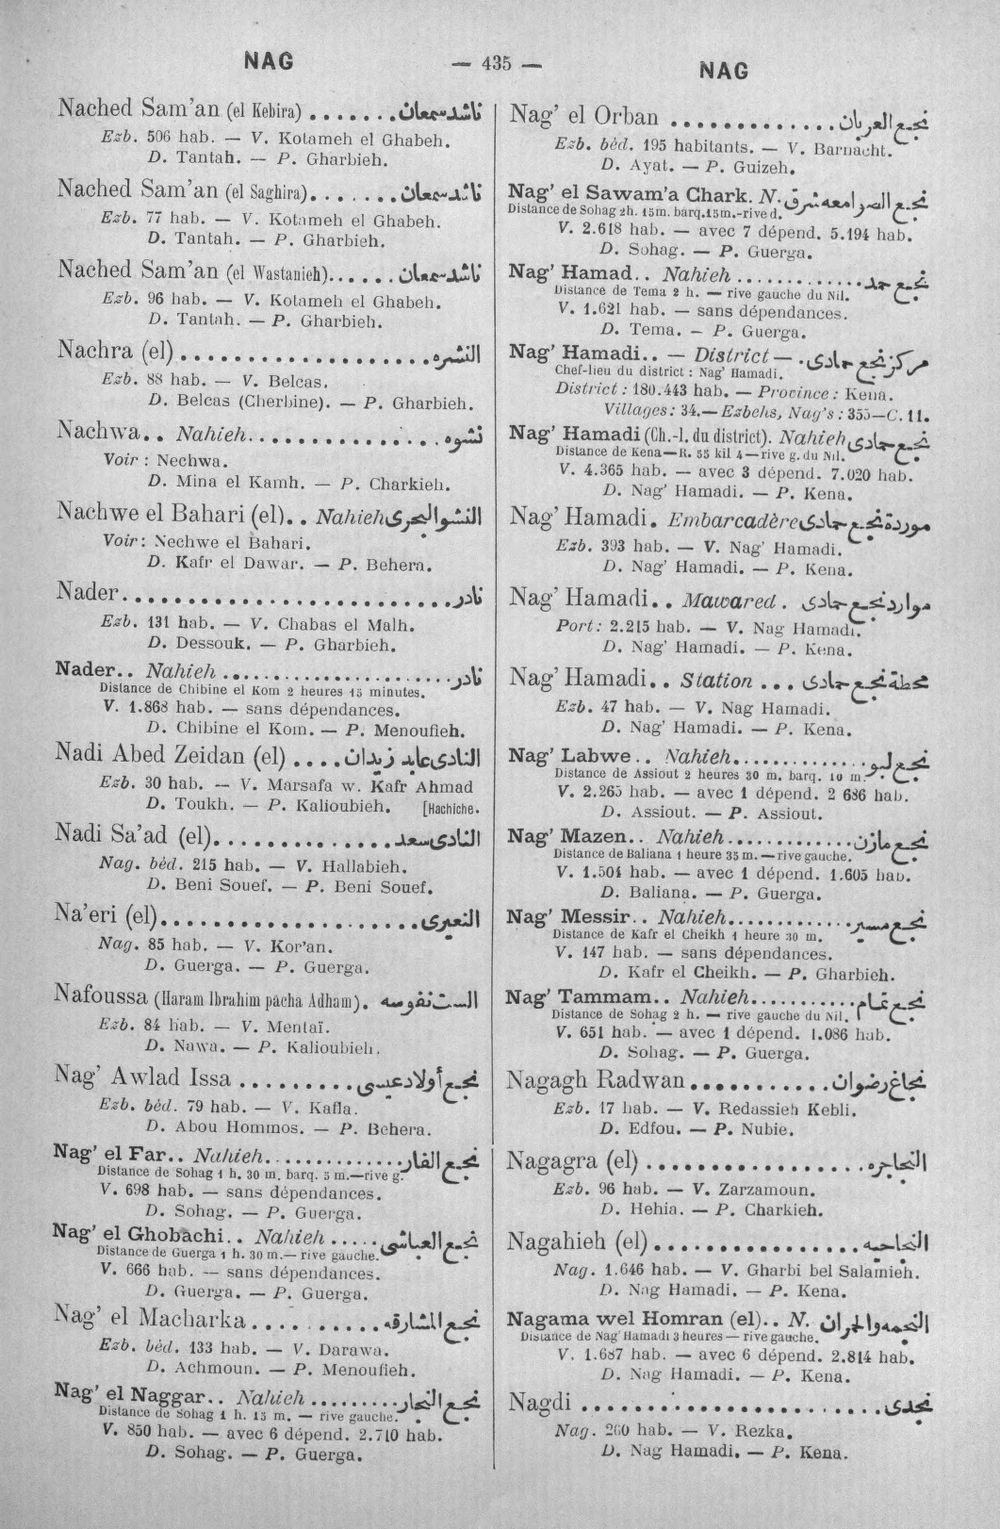 NAG
— 435 —
NAG
Nached Sam'an (el Kebira) ....... ناشد سمعان
Ezb. 506 hab. — V. Kotameh el Ghabeh.
D. Tantah. — P. Gharbieh.
Nached Sam'an (el Saghira)....... ناشد سمعان
Ezb. 77 hab. — V. Kotameh el Ghabeh.
D. Tantah. — P. Gharbieh.
Nached Sam'an (el Wastanieh)...... ناشد سمعان
Ezb. 96 hab. — V. Kotameh el Ghabeh.
D. Tantah. — P. Gharbieh.
Nachra (el) ................... النشره
Ezb. 88 hab. — V. Belcas.
D. Belcas (Cherbine). — P. Gharbieh.
Nachwa.. Nahieh.............. نشوه
Voir : Nechwa.
D. Mina el Kamh. — P. Charkieh.
Nachwe el Bahari (el).. Nahieh النشو البحرى
Voir : Nechwe el Bahari.
D. Kafr el Dawar. — P. Behera.
Nader........................ نادر
Ezb. 131 hab. — V. Chabas el Malh.
D. Dessouk. — P. Gharbieh.
Nader.. Nahieh .................. نادر
Distance de Chibine el Kom 2 heures 15 minutes.
V. 1.868 hab. — sans dépendances.
D. Chibine el Kom. — P. Menoufieh.
Nadi Abed Zeidan (el) .... النادى عابد زيدان
Ezb. 30 hab. — V. Marsafa w. Kafr Ahmad
D. Toukh. — P. Kalioubieh. [Hachiche.
Nadi Sa'ad (el)............. النادى سعد
Nag. béd. 215 hab. — V. Hallabieh.
D. Beni Souef. — P. Beni Souef.
Na'eri (el)................... النعيرى
Nag. 85 hab. — V. Kor'an.
D. Guerga. — P. Guerga.
Nafoussa (Haram Ibrahim pacha Adham). الست نفوسه
Ezb. 84 hab. — V. Mentaï.
D. Nawa. — P. Kalioubieh.
Nag' Awlad Issa ......... نجع أولاد عيسى
Ezb. béd. 79 hab. — V. Kafla.
D. Abou Hommos. — P. Behera.
Nag' el Far.. Nahieh............. نجع الفار
Distance de Sohag 1 h. 30 m. barq. 5 m.—rive g.
V. 698 hab. — sans dépendances.
D. Sohag. — P. Guerga.
Nag' el Ghobachi.. Nahieh ..... نجع العباشى
Distance de Guerga 1 h. 30 m.— rive gauche.
V. 666 hab. — sans dépendances.
D. Guerga. — P. Guerga.
Nag' el Macharka .......... نجع المشارقه
Ezb. béd. 133 hab. — V. Darawa.
D. Achmoun. — P. Menoufieh.
Nag' el Naggar.. Nahieh ......... نجع النجار
Distance de Sohag 1 h. 15 m. — rive gauche.
V. 850 hab. — avec 6 dépend. 2.710 hab.
D. Sohag. — P. Guerga.
Nag' el Orban ............. نجع العربان
Ezb. béd. 195 habitants. — V. Barnacht.
D. Ayat. — P. Guizeh.
Nag' el Sawam'a Chark. N. نجع الصوامعه شرق
Distance de Sohag 2h. 15m. barq.15m.-rive d.
V. 2.618 hab. — avec 7 dépend. 5.194 hab.
D. Sohag. — P. Guerga.
Nag' Hamad.. Nahieh ............. نجع حمد
Distance de Tema 2 h. — rive gauche du Nil.
V. 1.621 hab. — sans dépendances.
D. Tema. — P. Guerga.
Nag' Hamadi.. — District — . مركز نجع حمادى
Chef-lieu du district : Nag' Hamadi.
District : 180.443 hab. — Province : Kena.
Villages : 34.— Ezbehs, Nag's : 355—C. 11.
Nag' Hamadi (Ch.-l. du district). Nahieh نجع حمادى
Distance de Kena—R. 55 kil 4—rive g. du Nil.
V. 4.365 hab. — avec 3 dépend. 7.020 hab.
D. Nag' Hamadi. — P. Kena.
Nag' Hamadi. Embarcadère موردة نجع حمادى
Ezb. 393 hab. — V. Nag' Hamadi.
D. Nag' Hamadi. — P. Kena.
Nag' Hamadi.. Mawared . موارد نجع حمادى
Port : 2.215 hab. — V. Nag Hamadi.
D. Nag' Hamadi. — P. Kena.
Nag' Hamadi.. Station ... محطة نجع حمادى
Ezb. 47 hab. — V. Nag Hamadi.
D. Nag' Hamadi. — P. Kena.
Nag' Labwe.. Nahieh............. نجع لبو
Distance de Assiout 2 heures 30 m. barq. 10 m.
V. 2.265 hab. — avec 1 dépend. 2 686 hab.
D. Assiout. — P. Assiout.
Nag' Mazen.. Nahieh............ نجع مازن
Distance de Baliana 1 heure 35 m. — rive gauche.
V. 1.504 hab. — avec 1 dépend. 1.605 hab.
D. Baliana. — P. Guerga.
Nag' Messir.. Nahieh............ نجع مسير
Distance de Kafr el Cheikh 1 heure 30 m.
V. 147 hab. — sans dépendances.
D. Kafr el Cheikh. — P. Gharbieh.
Nag' Tammam.. Nahieh........... نجع تمام
Distance de Sohag 2 h. — rive gauche du Nil.
V. 651 hab. — avec 1 dépend. 1.086 hab.
D. Sohag. — P. Guerga.
Nagagh Radwan ........... نجاغ رضوان
Ezb. 17 hab. — V. Redassieh Kebli.
D. Edfou. — P. Nubie.
Nagagra (el) ................ النجاجره
Ezb. 96 hab. — V. Zarzamoun.
D. Hehia. — P. Charkieh.
Nagahieh (el) ................ النجاحيه
Nag. 1.646 hab. — V. Gharbi bel Salamieh.
D. Nag Hamadi. — P. Kena.
Nagama wel Homran (el).. N. النجمه والحمران
Distance de Nag' Hamadi 3 heures — rive gauche.
V. 1.687 hab. — avec 6 dépend. 2.814 hab.
D. Nag Hamadi. — P. Kena.
Nagdi ...................... نجدى
Nag. 260 hab. — V. Rezka.
D. Nag Hamadi. — P. Kena.